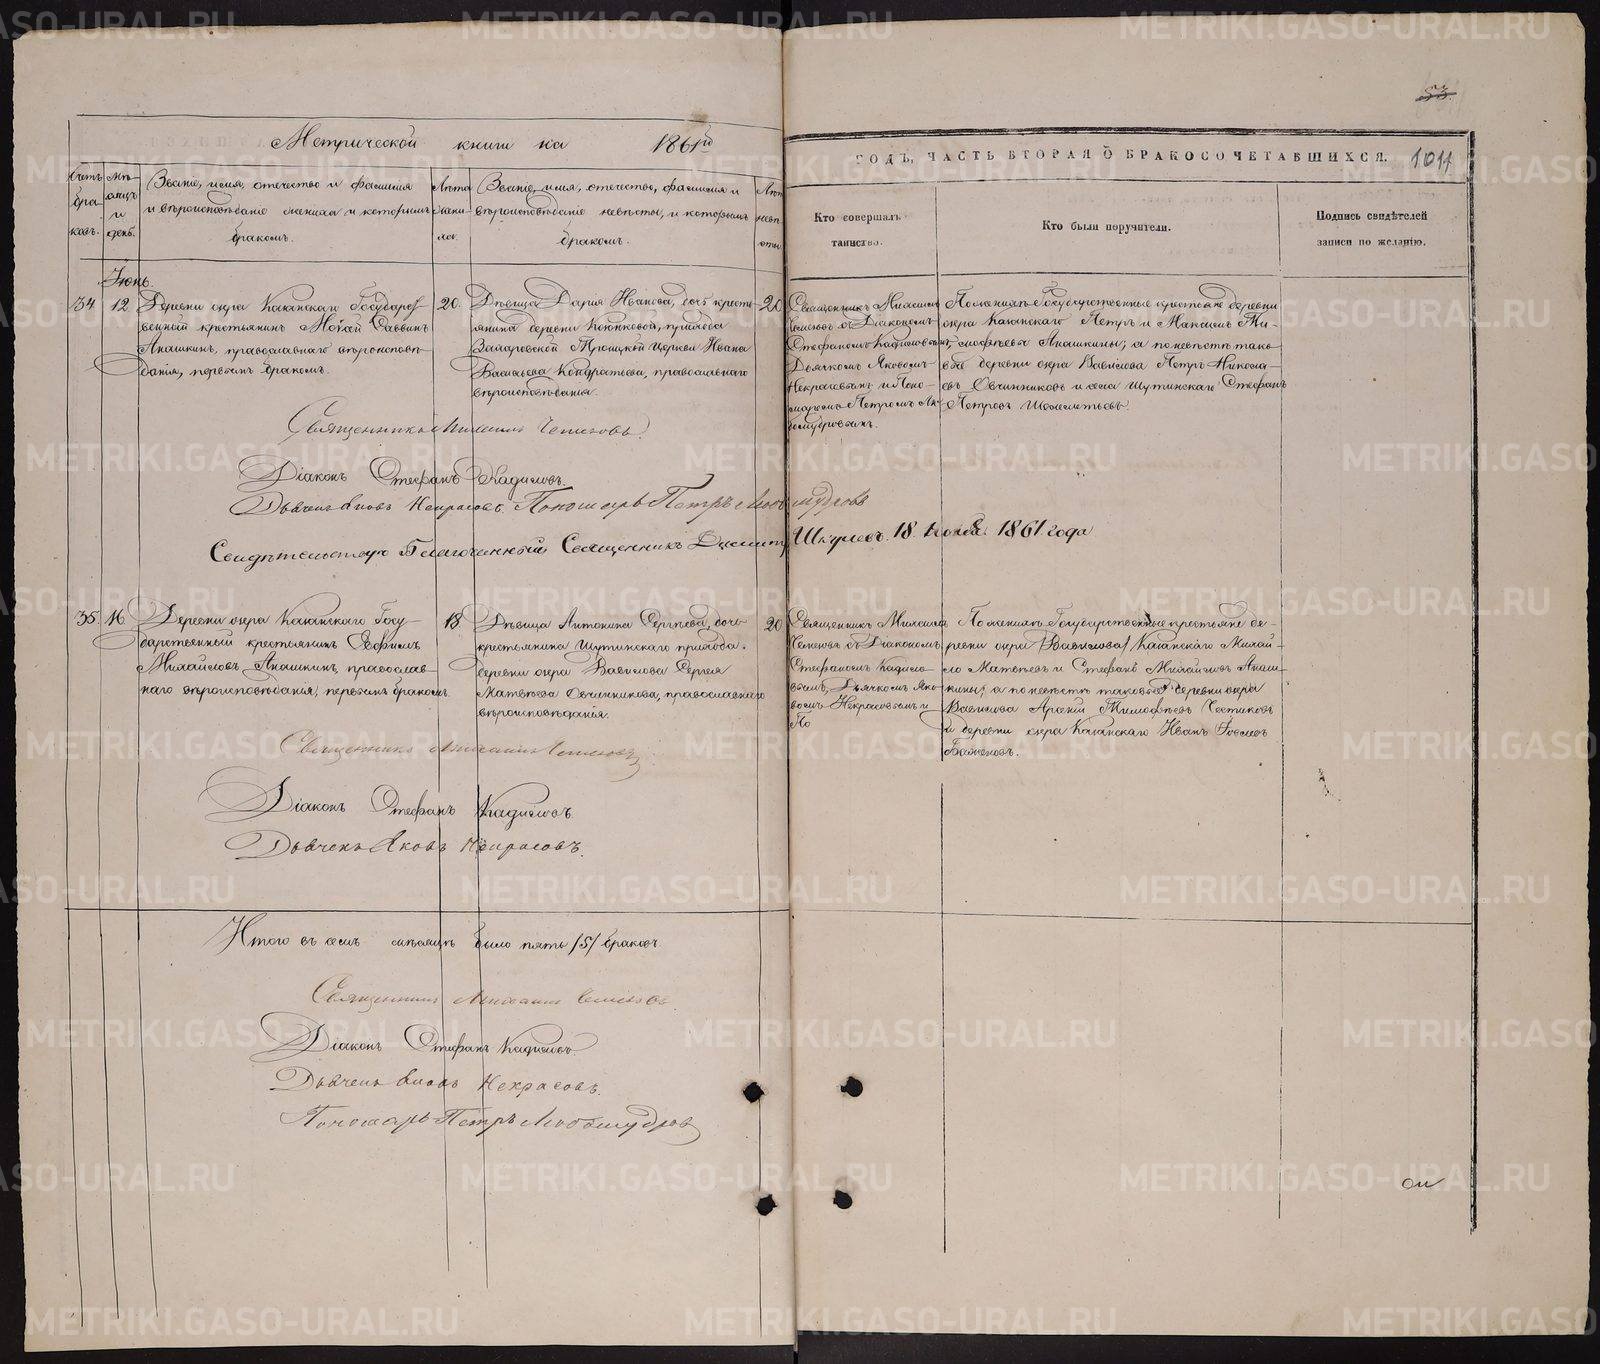 53.
Метрической книги на 1861й
ГОДЪ, ЧАСТЬ ВТОРАЯ О БРАКОСОЧЕТАВШИХСЯ.
1011
Счетъ браковъ.
Мѣсяцъ и день.
Званіе, имя, отечество и фамилія
и вѣроисповѣданіе жениха и которымъ
бракомъ.
Лѣта жениховъ.
Званіе, имя, отечество, фамилія и
вѣроисповѣданіе невѣсты, и которымъ
бракомъ.
Лѣта невѣсты.
Кто совершалъ
таинство.
Кто были поручители.
Подпись свидѣтелей
записи по желанію.
Іюнь.
34
12
Деревни озера Каганскаго Государст-
венный крестьянинъ Саввинъ
Анашкинъ, православнаго вѣроисповѣ-
данія, первымъ бракомъ.
20.
Дѣвица Дарія Иванова, дочь кресть-
янина деревни прихода
Троицкой Церкви Ивана
Васильева Кондратьева, православнаго
вѣроисповѣданія.
20
Священникъ Михаилъ
съ Діакономъ
Стефаномъ
Дьячкомъ Яковомъ
Некрасовымъ и Поно-
маремъ Петромъ Лю-
бомудровымъ.
По женихѣ Государственные крестьяне деревни
озера Каганскаго Петръ и Максимъ Ти-
мофѣевы Анашкины; а по невѣстѣ тако-
вые деревни озера Вавилова Петръ Никола-
евъ Овчинниковъ и села Шутинскаго Стефанъ
Петровъ
Священникъ Михаилъ
Діаконъ Стефанъ
Дьячекъ Яковъ Некрасовъ. Пономарь Петръ Любомудровъ
Свидѣтельствую Благочинный Священникъ 18 1861 года
35.
16
Деревни озера Каганскаго Госу-
дарственный крестьянинъ Ефимъ
Михайловъ Анашкинъ, православ-
наго вѣроисповѣданія, первымъ бракомъ.
18.
Дѣвица Антонина Сергѣева, дочь
крестьянина Шутинскаго прихода
деревни озера Вавилова Сергея
Матвѣева Овчинникова, православнаго
вѣроисповѣданія.
20
Священникъ Михаилъ
съ Діакономъ
Стефаномъ
Дьячкомъ Яко-
вомъ Некрасовымъ и
По
По женихѣ Государственные крестьяне де-
ревни озера Каганскаго Михай-
ло Матвѣевъ и Стефанъ Михайловъ Анаш-
кины; а по невѣстѣ таковые деревни озера
Вавилова Арсеній Тимофѣевъ
и деревни озера Каганскаго Иванъ
Баженовъ.
Священникъ Михаилъ
Діаконъ Стефанъ
Дьячекъ Яковъ Некрасовъ.
Итого въ семъ мѣсяцѣ было пять /5/ браковъ
Священникъ Михаилъ
Діаконъ Стефанъ
Дьячекъ Яковъ Некрасовъ.
Пономарь Петръ Любомудровъ
METRIKI.GASO-URAL.RU